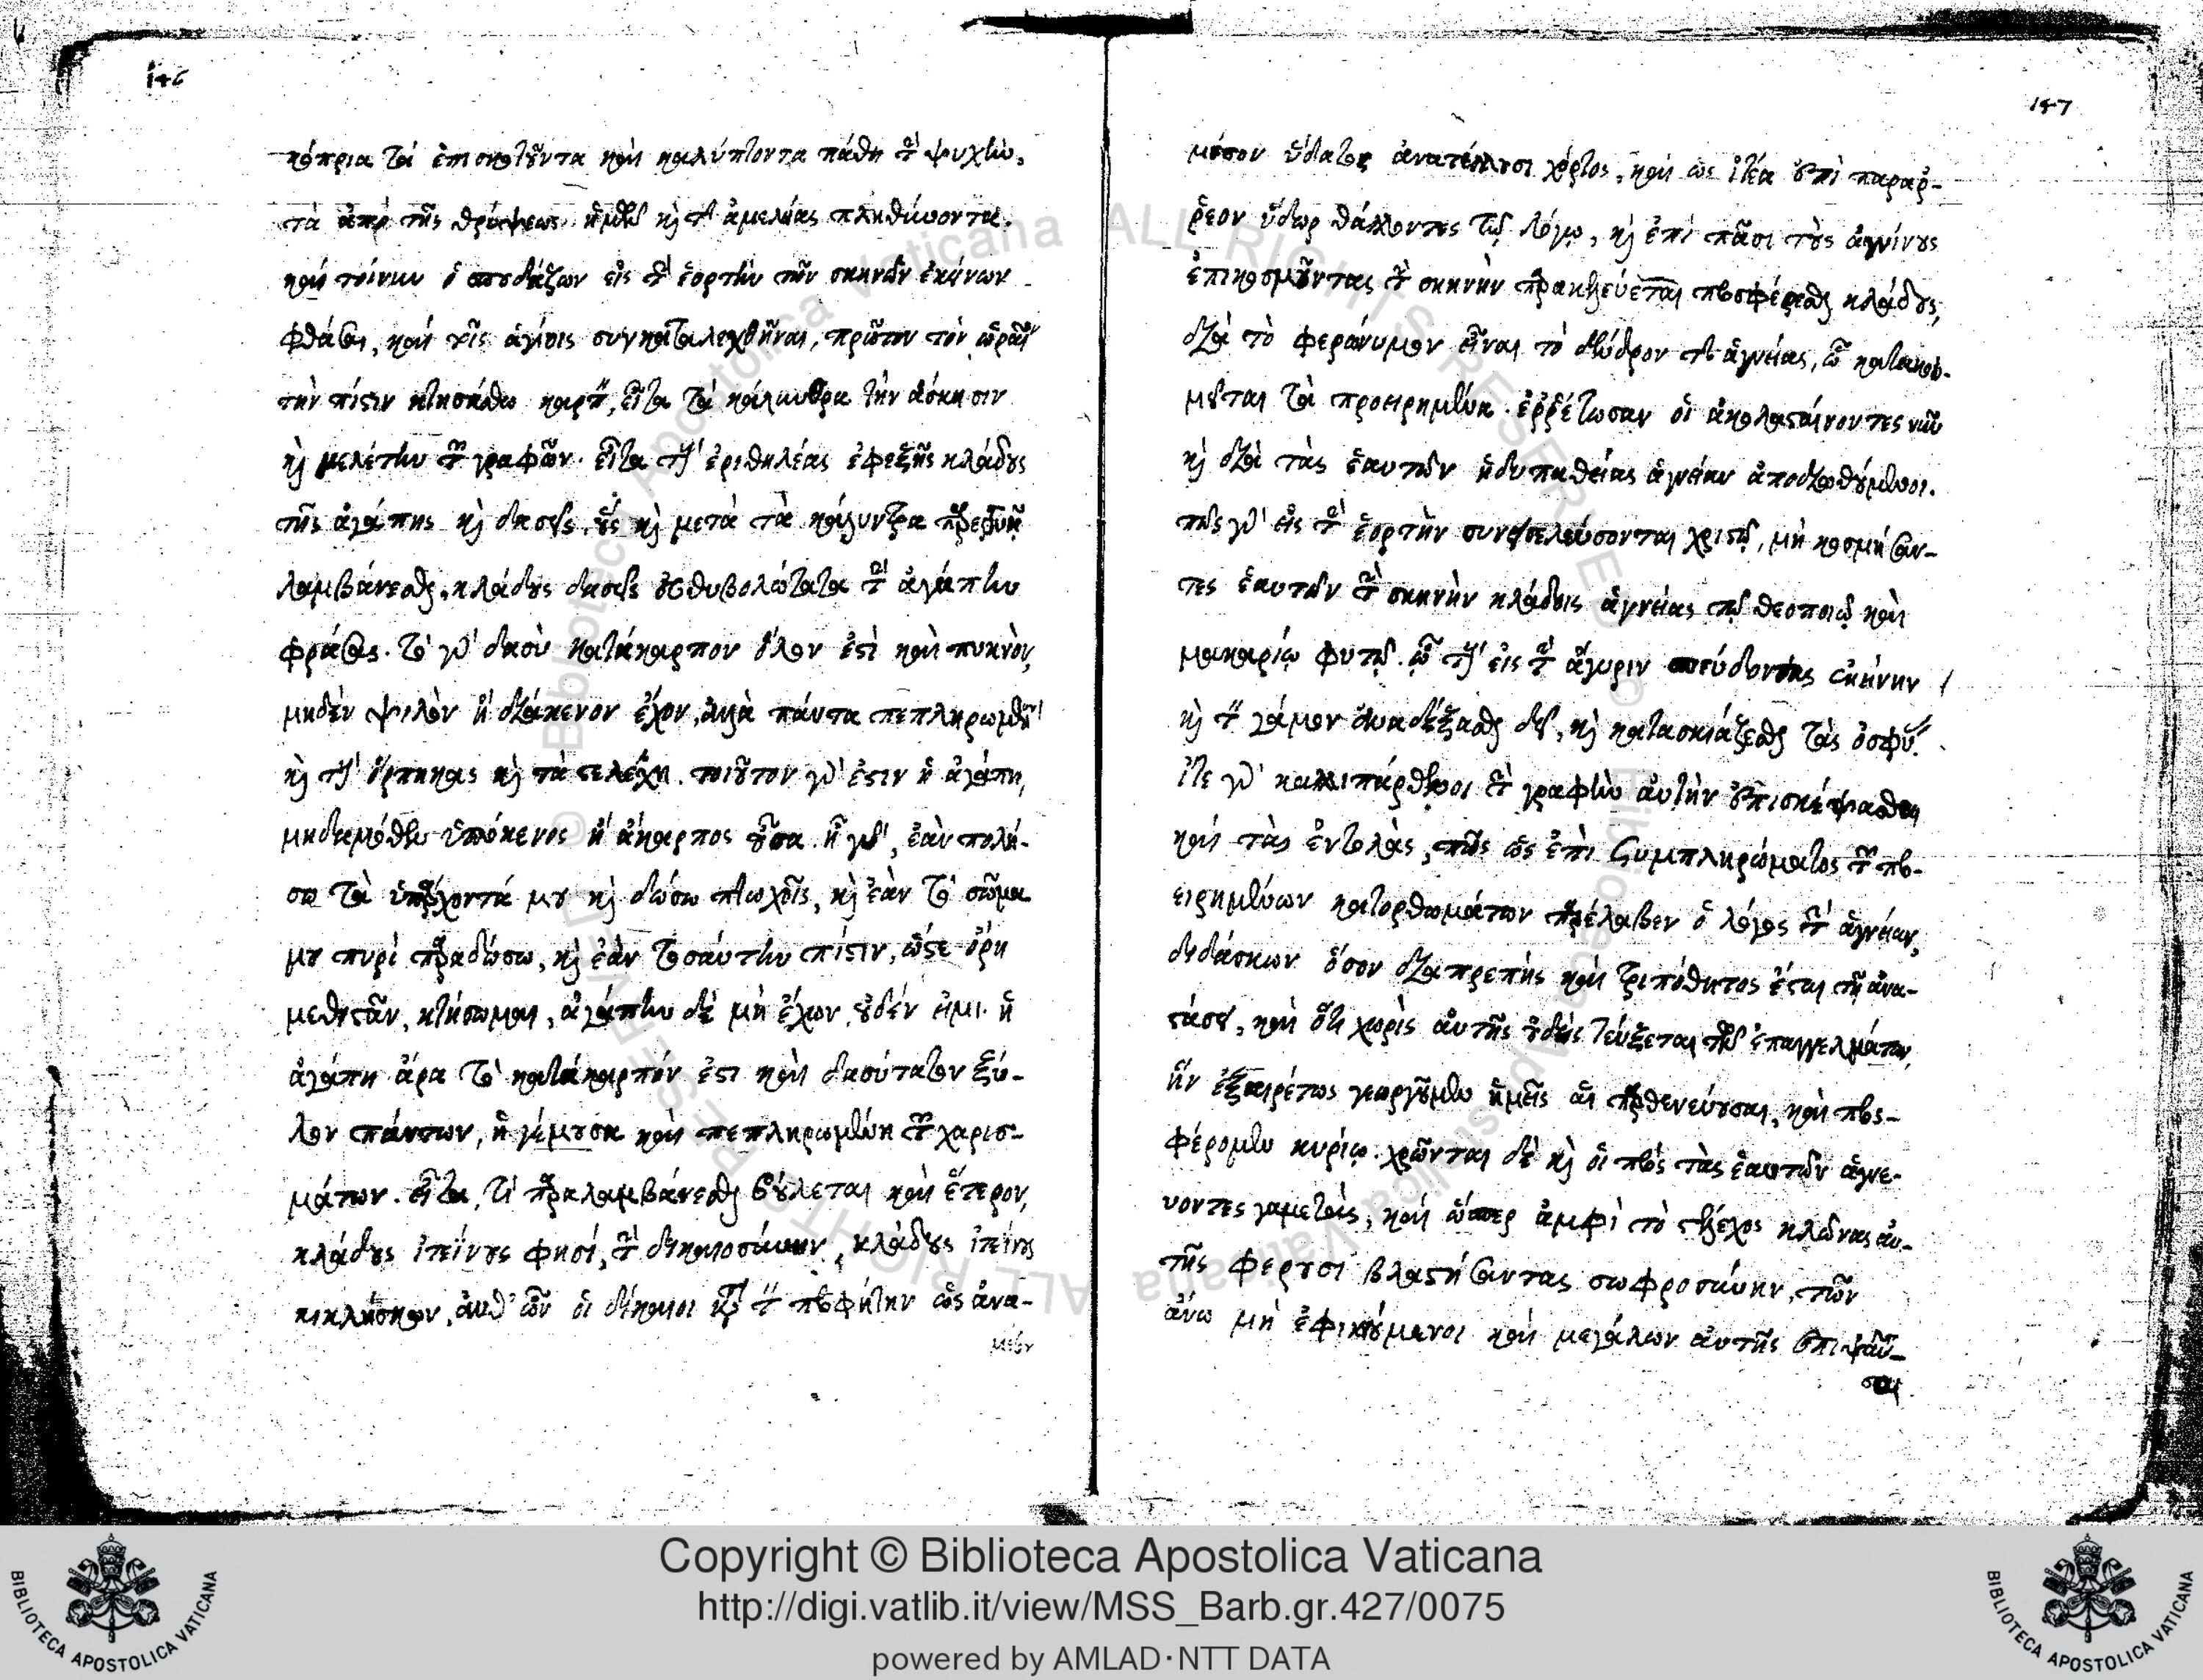 146
κόπρια τὰ ἐπισκοτοῦντα καὶ καλύπτοντα πάθη τὴν ψυχήν,
τὰ ἀπὸ τῆς θρύψεως ἡμῶν καὶ τῆς ἀμελείας πληθύνοντα.
καὶ τοίνυν ὁ σπουδάζων εἰς τὴν ἑορτὴν τῶν σκηνῶν ἐκείνων
φθάσαι, καὶ τοῖς ἁγίοις συγκαταλεχθῆναι, πρῶτον τὸν ὡραῖον
τὴν πίστιν κτησάσθω καρπὸν, εἶτα τὰ κάλλυνθρα τὴν ἄσκησιν
καὶ μελέτην τῶν γραφῶν. εἶτα τοὺς ἐριθηλέας ἐφεξῆς κλάδους
τῆς ἀγάπης καὶ δασεῖς, οὓς καὶ μετὰ τὰ κάλυντρα
λαμβάνεσθαι, κλάδους δασεῖς εὐθυβολώτατα τὴν ἀγάπην
φράσας. τὸ γὰρ δασὺ κατάκαρπον ὅλον ἐστὶ καὶ πυκνὸν,
μηδὲν ψιλὸν ἢ διάκενον ἔχον, ἀλλὰ πάντα πεπληρωμένον
καὶ τοὺς ὅρπηκας καὶ τὰ στελέχη. τοιοῦτον γάρ ἐστιν ἡ ἀγάπη,
μηδαμόθεν ὑπόκενος ἢ ἄκαρπος οὖσα. ἢ γὰρ, ἐὰν πολή-
σω τὰ ὑπάρχοντά μου καὶ δώσω πτωχοῖς, καὶ ἐὰν τὸ σῶμα
μου πυρὶ παραδώσω, καὶ ἐὰν τοσαύτην πίστιν, ὥστε ὄρη
μεθιστᾶν, κτήσωμαι, ἀγάπην δὲ μὴ ἔχων, οὐδέν εἰμι. ἡ
ἀγάπη ἄρα τὸ κατάκαρπόν ἐστι καὶ δασύτατον ξύ-
λον πάντων, ἡ γέμουσα καὶ πεπληρωμένη τῶν χαρισ-
μάτων. εἶτα, τί παραλαμβάνεσθαι βούλεται καὶ ἕτερον,
κλάδους ἰτεΐνους φησί, τὴν δικαιοσύνην, κλάδους ἰτεΐνους
κικλήσκων, ἀνθ' ὧν οἱ δίκαιοι κατὰ τὸν προφήτην ὡς ἀνα-
μέσον
147
μέσον ὕδατος ἀνατέλλουσι χόρτος, καὶ ὡς ἰτέα ἐπὶ παραρ-
ρέον ὕδωρ θάλλοντες τῷ λόγῳ, καὶ ἐπὶ πᾶσι τοὺς ἁγνίνους
ἐπικοσμοῦντας τὴν σκηνὴν παρακελεύεται προσφέρεσθαι κλάδους,
διὰ τὸ φερώνυμον εἶναι τὸ δένδρον τῆς ἁγνείας, ᾧ κατακοσ-
μοῦται τὰ προειρημένα. ἐρρέτωσαν οἱ ἀκολασταίνοντες νῦν
καὶ διὰ τὰς ἑαυτῶν ἡδυπαθείας ἁγνείαν ἀποδιωθούμενοι.
πῶς γὰρ εἰς τὴν ἑορτὴν συνεισελεύσονται χριστῷ, μὴ κοσμήσαν-
τες ἑαυτῶν τὴν σκηνὴν κλάδοις ἁγνείας τῷ θεοποιῷ καὶ
μακαρίῳ φυτῷ. ᾧ τοὺς εἰς τὴν ἄγυριν σπεύδοντας ἐκείνην
καὶ τὸν γάμον ἀναδέξασθαι δεῖ, καὶ κατασκιάζεσθαι τὰς ὀσφῦς.
ἴτε γὰρ καλλιπάρθενοι τὴν γραφὴν αὐτὴν ἐπισκέψασθαι
καὶ τὰς ἐντολὰς, πῶς ὡς ἐπὶ συμπληρώματος τῶν προ-
ειρημένων κατορθωμάτων παρέλαβεν ὁ λόγος τὴν ἁγνείαν,
διδάσκων ὅσον διαπρεπὴς καὶ τριπόθητος ἔσται τῇ ἀνα-
στάσει, καὶ ὅτι χωρὶς αὐτῆς οὐδεὶς τεύξεται τῶν ἐπαγγελμάτων,
ἣν ἐξαιρέτως γεωργοῦμεν ἡμεῖς αἱ παρθενεύουσαι, καὶ προσ-
φέρομεν κυρίῳ. χρῶνται δὲ καὶ οἱ πρὸς τὰς ἑαυτῶν ἁγνε-
ύοντες γαμετὰς, καὶ ὥσπερ ἀμφὶ τὸ στέλεχος κλῶνας αὐ-
τῆς φέρουσι βλαστήσαντας σωφροσύνην, τῶν
ἄνω μὴ ἐφικούμενοι καὶ μεγάλων αὐτῆς ἐπιψαῦ-
σαι
Copyright © Biblioteca Apostolica Vaticana
http://digi.vatlib.it/view/MSS_Barb.gr.427/0075
powered by AMLAD·NTT DATA
BIBLIOTECA APOSTOLICA VATICANA
BIBLIOTECA APOSTOLICA VATICANA